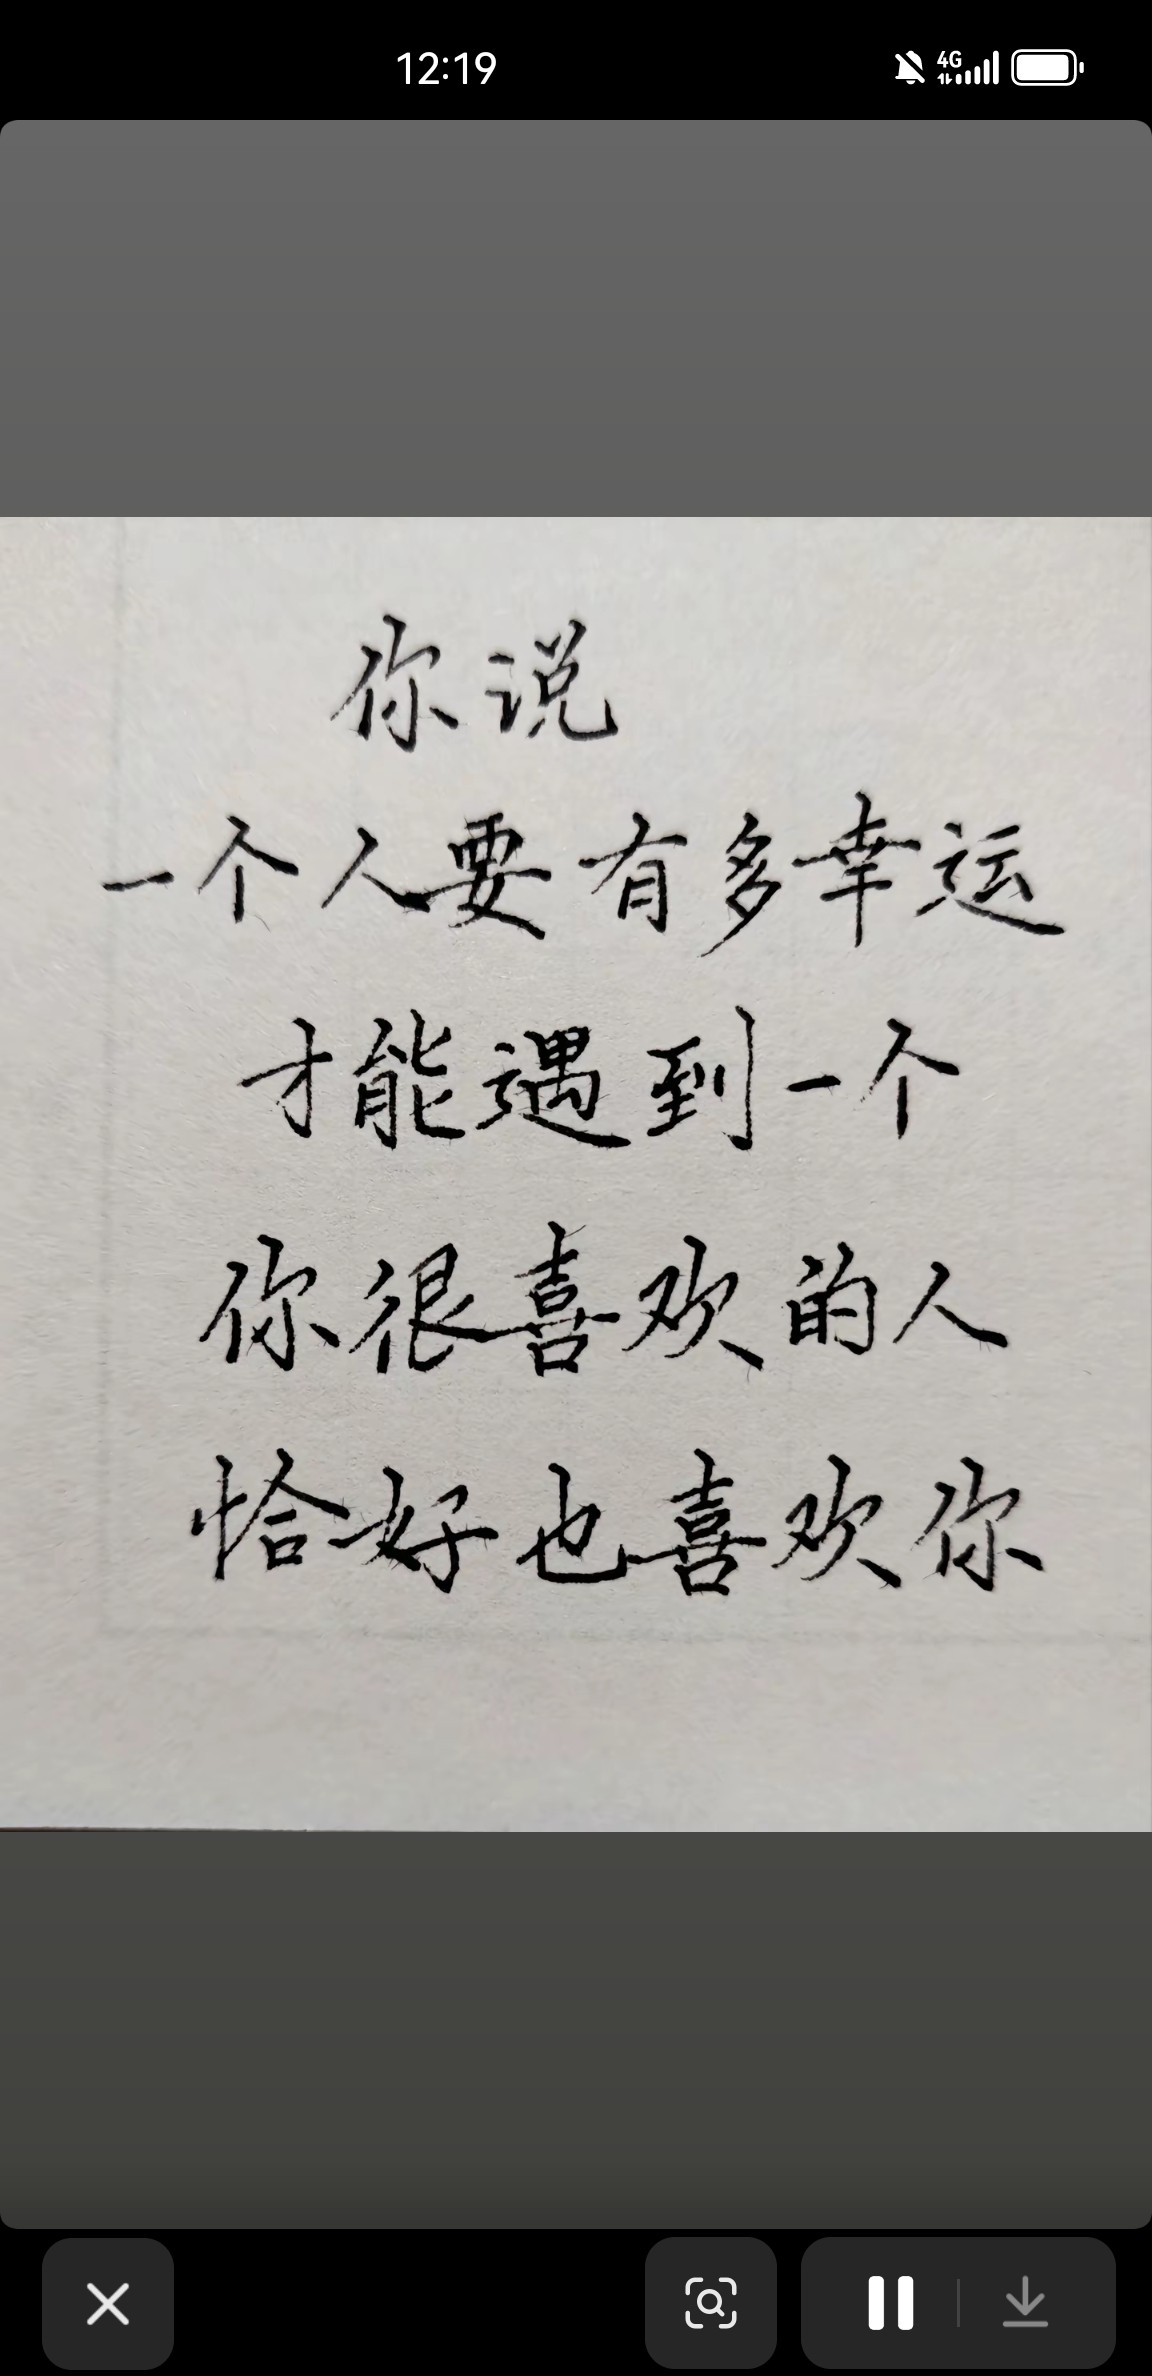 12:19
4G
你说
一个人要有多幸运
才能遇到一个
你很喜欢的人
恰好也喜欢你